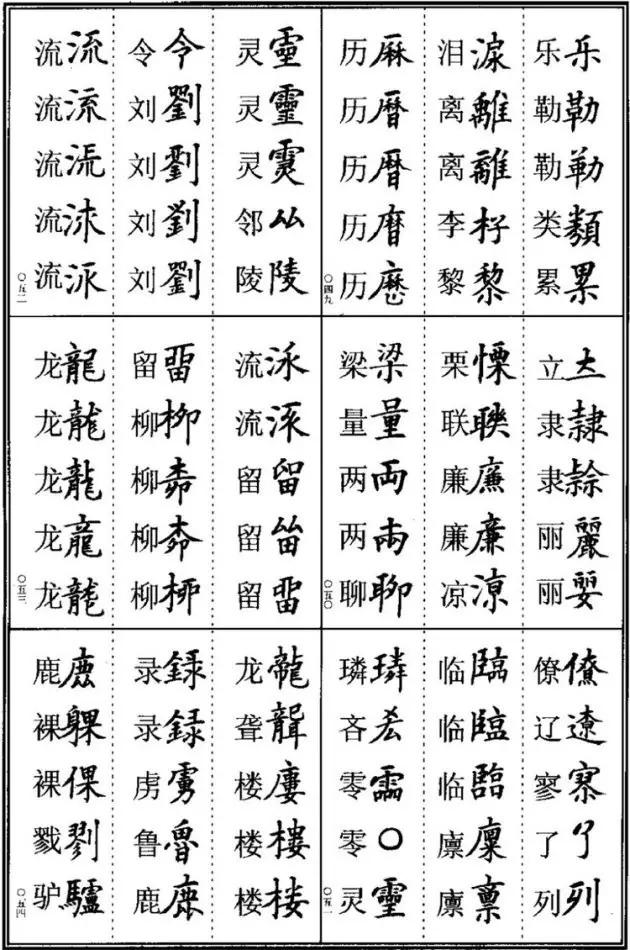 乐乐勒勒勒勒类類累累
泪淚离離离離李杍黎黎
历厤历曆历暦历历
〇四九
立隶隸隶丽麗丽
栗慄联聨廉廉廉廉凉凉
梁梁量量两両两兩聊聊
〇五〇
僚僚辽遼寥了了列列
临臨临臨临臨廪廩廪稟
璘璘吝零霝零〇灵靈
〇五一
灵霊灵靈灵邻厸陵陵
令令刘劉刘劉刘劉刘劉
流流流流流流流流
〇五二
流流留留留留畱
留畱柳柳柳柳柳
龙龍龙龍龙龍龙龍龙龍
〇五三
龙龍聋聾楼廔楼樓楼楼
录録录録虏虜鲁魯鹿
鹿鹿裸躶裸倮戮剹驴驢
〇五四